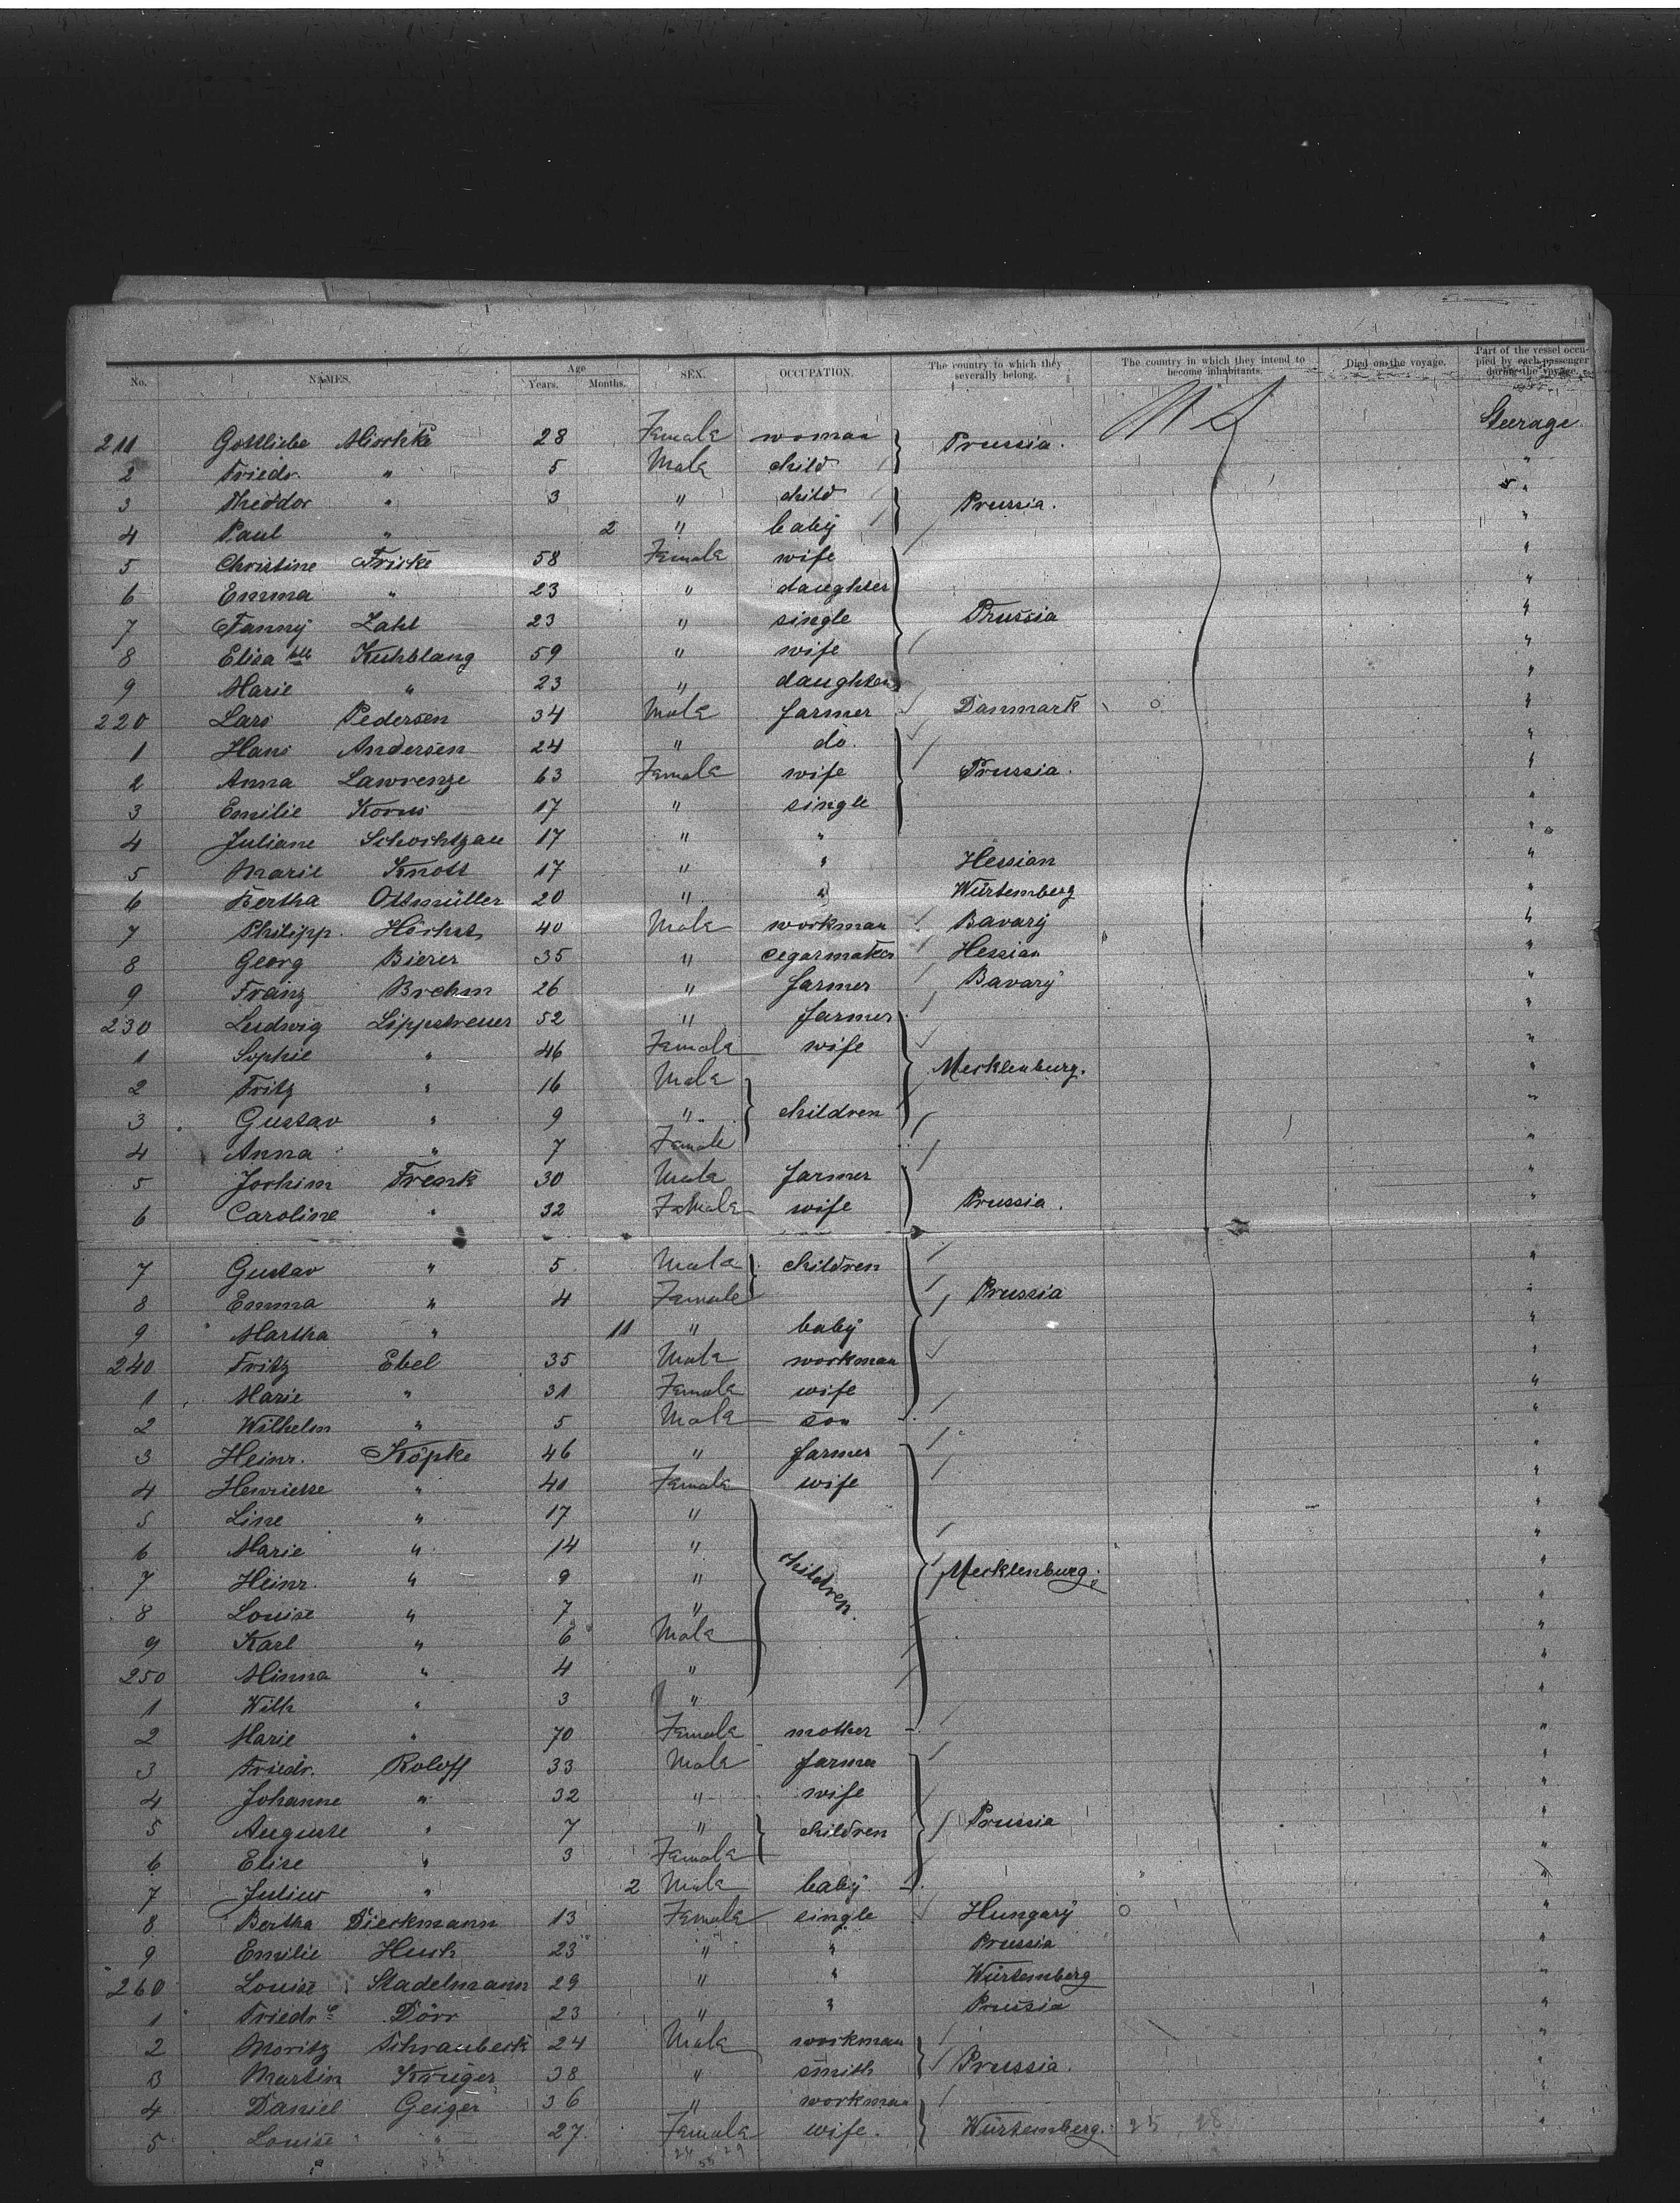 No. NAMES. Age Years. Months. SEX. OCCUPATION. The country to which they severally belong. The country in which they intend to become inhabitants. Died on the voyage. Part of the vessel occupied by each passenger during the voyage.
211 Gottliebe Mischke 28 Female woman Prussia. Steerage
2 Friedr. " 5 Male child "
3 Theodor " 3 " child Prussia. "
4 Paul " 2 " baby "
5 Christine Fricke 58 Female wife "
6 Emma " 23 " daughter "
7 Fanny Zahl 23 " single Prussia "
8 Elisa Kuhblang 59 " wife "
9 Marie " 23 " daughter "
220 Lars Pedersen 34 Male farmer Danmark "
1 Hans Andersen 24 " do. "
2 Anna Lawrenze 63 Female wife Prussia. "
3 Emilie Korus 17 " single "
4 Juliane Schochtzau 17 " " "
5 Marie Knott 17 " " Hessian "
6 Bertha Ottmüller 20 " " Würtemberg "
7 Philipp. Höchst 40 Male workman Bavary "
8 Georg Bierer 35 " cegarmaker Hessian "
9 Franz Brehm 26 " farmer Bavary "
230 Ludwig Lippstreuer 52 " farmer "
1 Sophie " 46 Female wife Mecklenburg. "
2 Fritz " 16 Male "
3 Gustav " 9 " children "
4 Anna " 7 Female "
5 Jochim Frenk 30 Male farmer "
6 Caroline " 32 Female wife Prussia. "
7 Gustav " 5 Male children "
8 Emma " 4 Female Prussia "
9 Martha " 11 " baby "
240 Fritz Ebel 35 Male workman "
1 Marie " 31 Female wife "
2 Wilhelm " 5 Male son "
3 Heinr. Köpke 46 " farmer "
4 Henriette " 41 Female wife "
5 Line " 17 " "
6 Marie " 14 " children "
7 Heinr. " 9 " Mecklenburg. "
8 Louise " 7 " "
9 Karl " 6 Male "
250 Minna " 4 " "
1 Wilh " 3 " "
2 Marie " 70 Female mother "
3 Friedr. Roloff 33 Male farmer "
4 Johanne " 32 " wife "
5 Auguste " 7 " children Prussia "
6 Elise " 3 Female "
7 Julius " 2 Male baby "
8 Bertha Dieckmann 13 Female single Hungary "
9 Emilie Huch 23 " " Prussia "
260 Louise Stadelmann 29 " " Würtemberg "
1 Friedr e Dörr 23 " " Prussia "
2 Moritz Schraubeck 24 Male workman "
3 Martin Krüger 38 " smith Prussia. "
4 Daniel Geiger 36 " workman "
5 Louise " 27 Female wife. Würtemberg. "